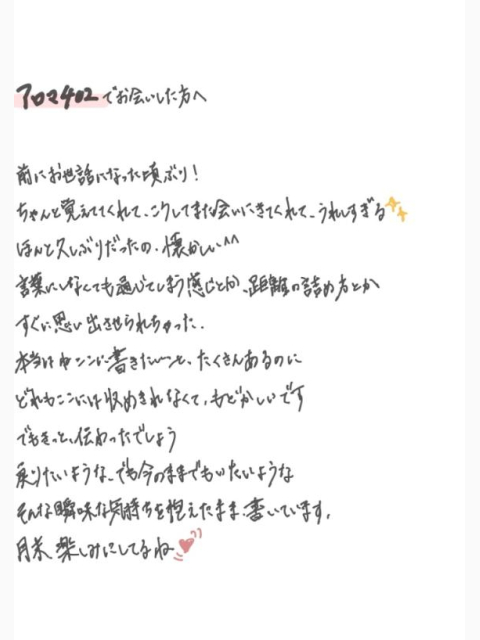 アロマ402でお会いした方へ
前にお世話になった頃ぶり！
ちゃんと覚えててくれて、こうしてまた会いにきてくれて、うれしすぎる
ほんと久しぶりだったの、懐かしい^^
言葉にしなくても通じてしまう感じとか、距離の詰め方とか
すぐに思い出させられちゃった、
本当は 書きたいこと、たくさんあるのに
どれもここには収めきれなくて、もどかしいです
でもきっと、伝わったでしょう
乗りたいような、でも今のままでもいたいような
そんな曖昧な気持ちを抱えたまま、書いています、
月末、楽しみにしてるね